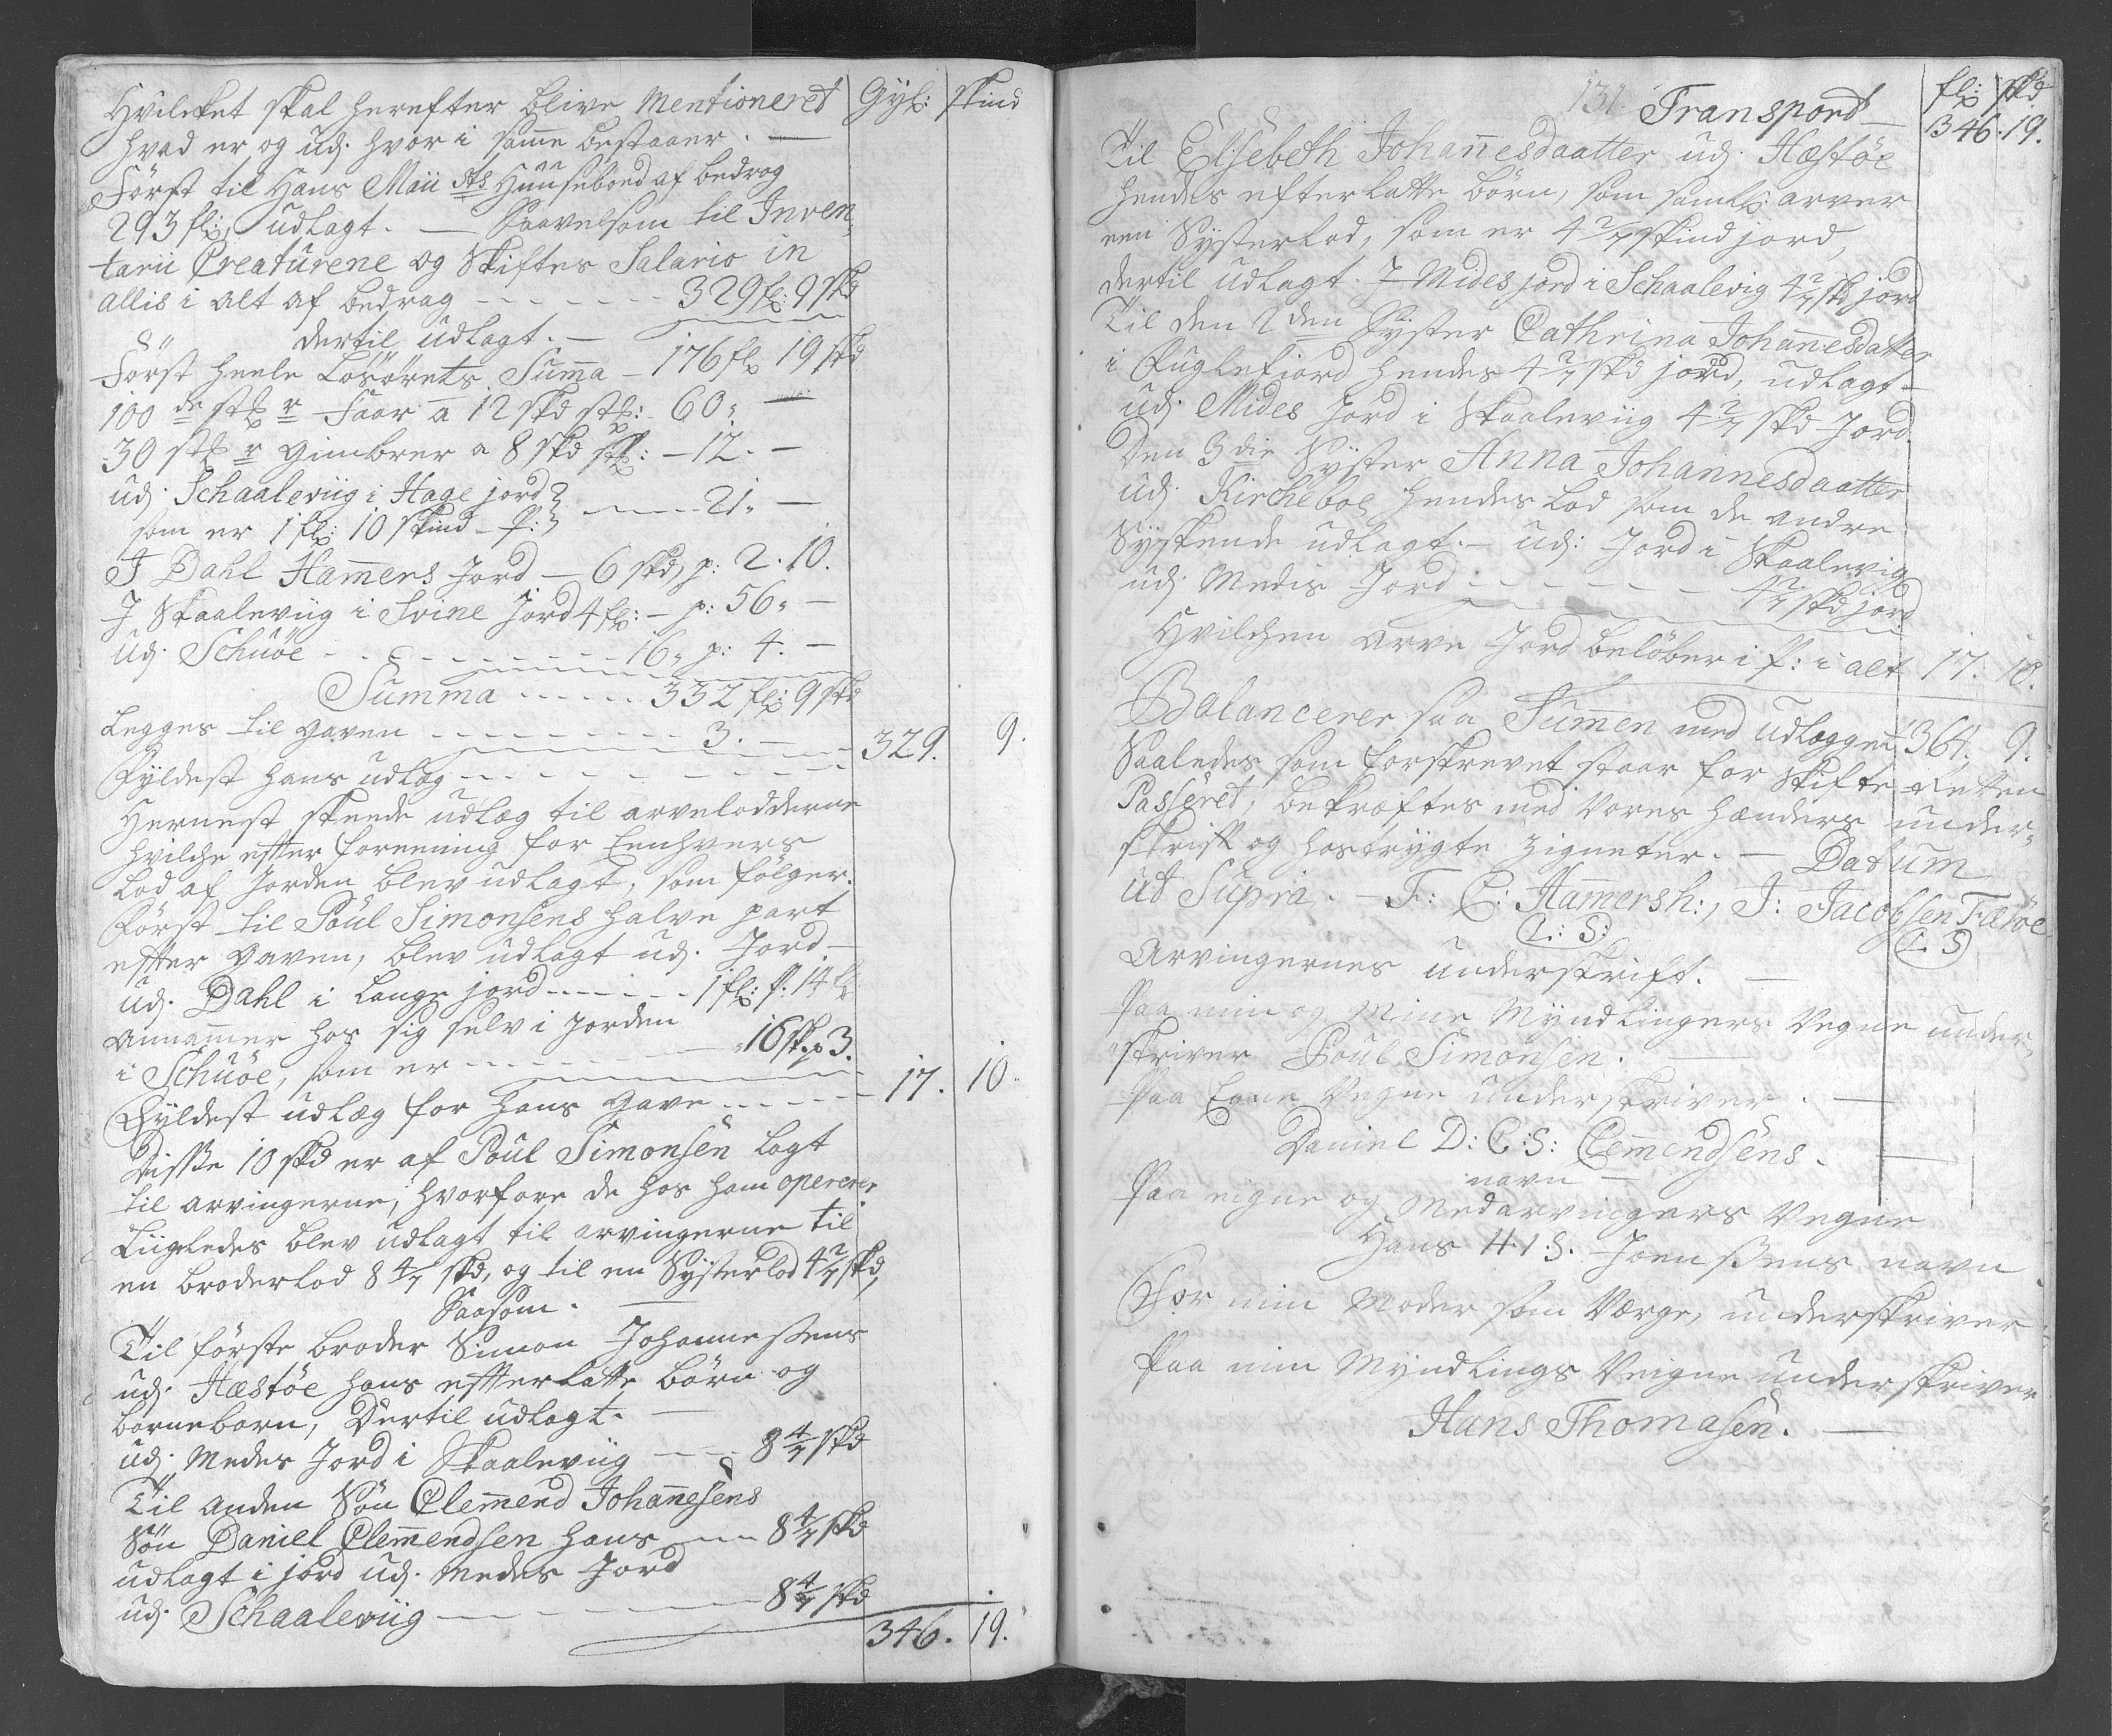 Hvilcket skal herefter blive Mentioneret Gyl: skind
hvad er og udj. hvor i same bestaaer. —
Först til Hans Maii sts Huusebond af bedrog
293 fl: udlagt. — Saavelsom til Inven-
tarii Creaturene og Skiftes Salario in
allis i alt af bedrag - - - - - - 329 fl: 9 skd
dertil udlagt. —
Först heele Lösörets Suma — 176 fl 19 skd
100 de stk r Faar a 12 skd stk: 60: —
30 stk r gimbrer a 8 skd stk: — 12. —
udj. Schaaleviig i Hage jord
som er 1 fl: 10 skind - p: - - - - 21. —
I Dahl Hamers Jord — 6 skd, p: 2. 10.
I Skaaleviig i Svine Jord 4 fl: — p: 56: —
udj. Schuöe - - - - - - - 16: p: 4. —
Summa - - - - - 332 fl: 9 skd
Legges til gaven - - - - - - - - 3. —
Fyldest hans udlæg - - - - - - - - 329. 9.
Hernest skeede udlæg til arvelodderne
hvilche efter foreening for Eenhvers
Lod af Jorden blev udlagt, som fölger.
Först til Poul Simonsens halve part
efter gaven, blev udlagt udj. Jord —
udj. Dahl i Lange jord - - - - - - 1 fl: p: 14 fl
Annamer hos sig selv i Jorden
i Schuöe, som er - - - - - - 16 sk. p 3.
Fyldest udlæg for hans gave - - - - - 17. 10.
Disse 10 skd er af Poul Simonsen lagt
til arvingerne, hvorfore de hos ham opererer
Liigeledes blev udlagt til arvingerne til
en broderlod 8 4/7 skd, og til en Systerlod 4 2/7 skd,
Saasom. —
Til förste broder Simon Johannesens
udj. Hæstöe hans efterlatte börn og
barneborn, Dertil udlagt. —
udj. Medes Jord i Skaaleviig — - - 8 4/7 skd
Til anden Sön Clemend Johanesens
Sön Daniel Clemendsen hans — - - 8 4/7 skd
udlagt i jord udj. Medes Jord
udj. Schaaleviig — - - - - - - 8 4/7 skd
346. 19.
131. Transport — fl: skd
346. 19.
Til Elsebeth Johanesdaatter udj. Hæstöe
hendes efterlatte börn, som samtl: arver
een Systerlod, som er 4 2/7 skind jord,
dertil udlagt. I Mides jord i Schaalevig 4 2/7 skd jord
Til den 2den Syster Cathrina Johanesdatter
i Fuglefiord hendes 4 2/7 skd jord, udlagt —
udj. Mides Jord i Skaaleviig 4 2/7 skd Jord
Den 3die Syster Anna Johannesdaatter
udj. Kircheboe hendes Lod som de andre
Syskende udlagt. — udj: Jord i Skaalevig
udj. Medes Jord - - - - - - 4 2/7 skd jord
Hvilchen arve Jord beløber i p: i alt 17. 10.
Balancerer saa Sumen med udlægget 364. 9.
Saaledes som forskrevet staar for Skifte Retten
Passeret, bekræftes med Vores hænders under-
skrift og hostrygte Zigneter. — Datum
ut Supra. — F: C: Hamersh:, J: Jacobsen Færöe
L: S: L. S
Arvingernes underskrift. —
Paa min og Mine Myndlingers Vegne under-
skriver Poul Simonsen. —
Paa Egne Vegne underskriver. —
Daniel D: C: S: Clemendsens.
navn —
Paa eigne og Medarvingers Vegne
Hans H. I. S. Joensens navn
For min Moder som Værge, underskriver
Paa min Myndlings Veigne underskriver
Hans Thomasen. —